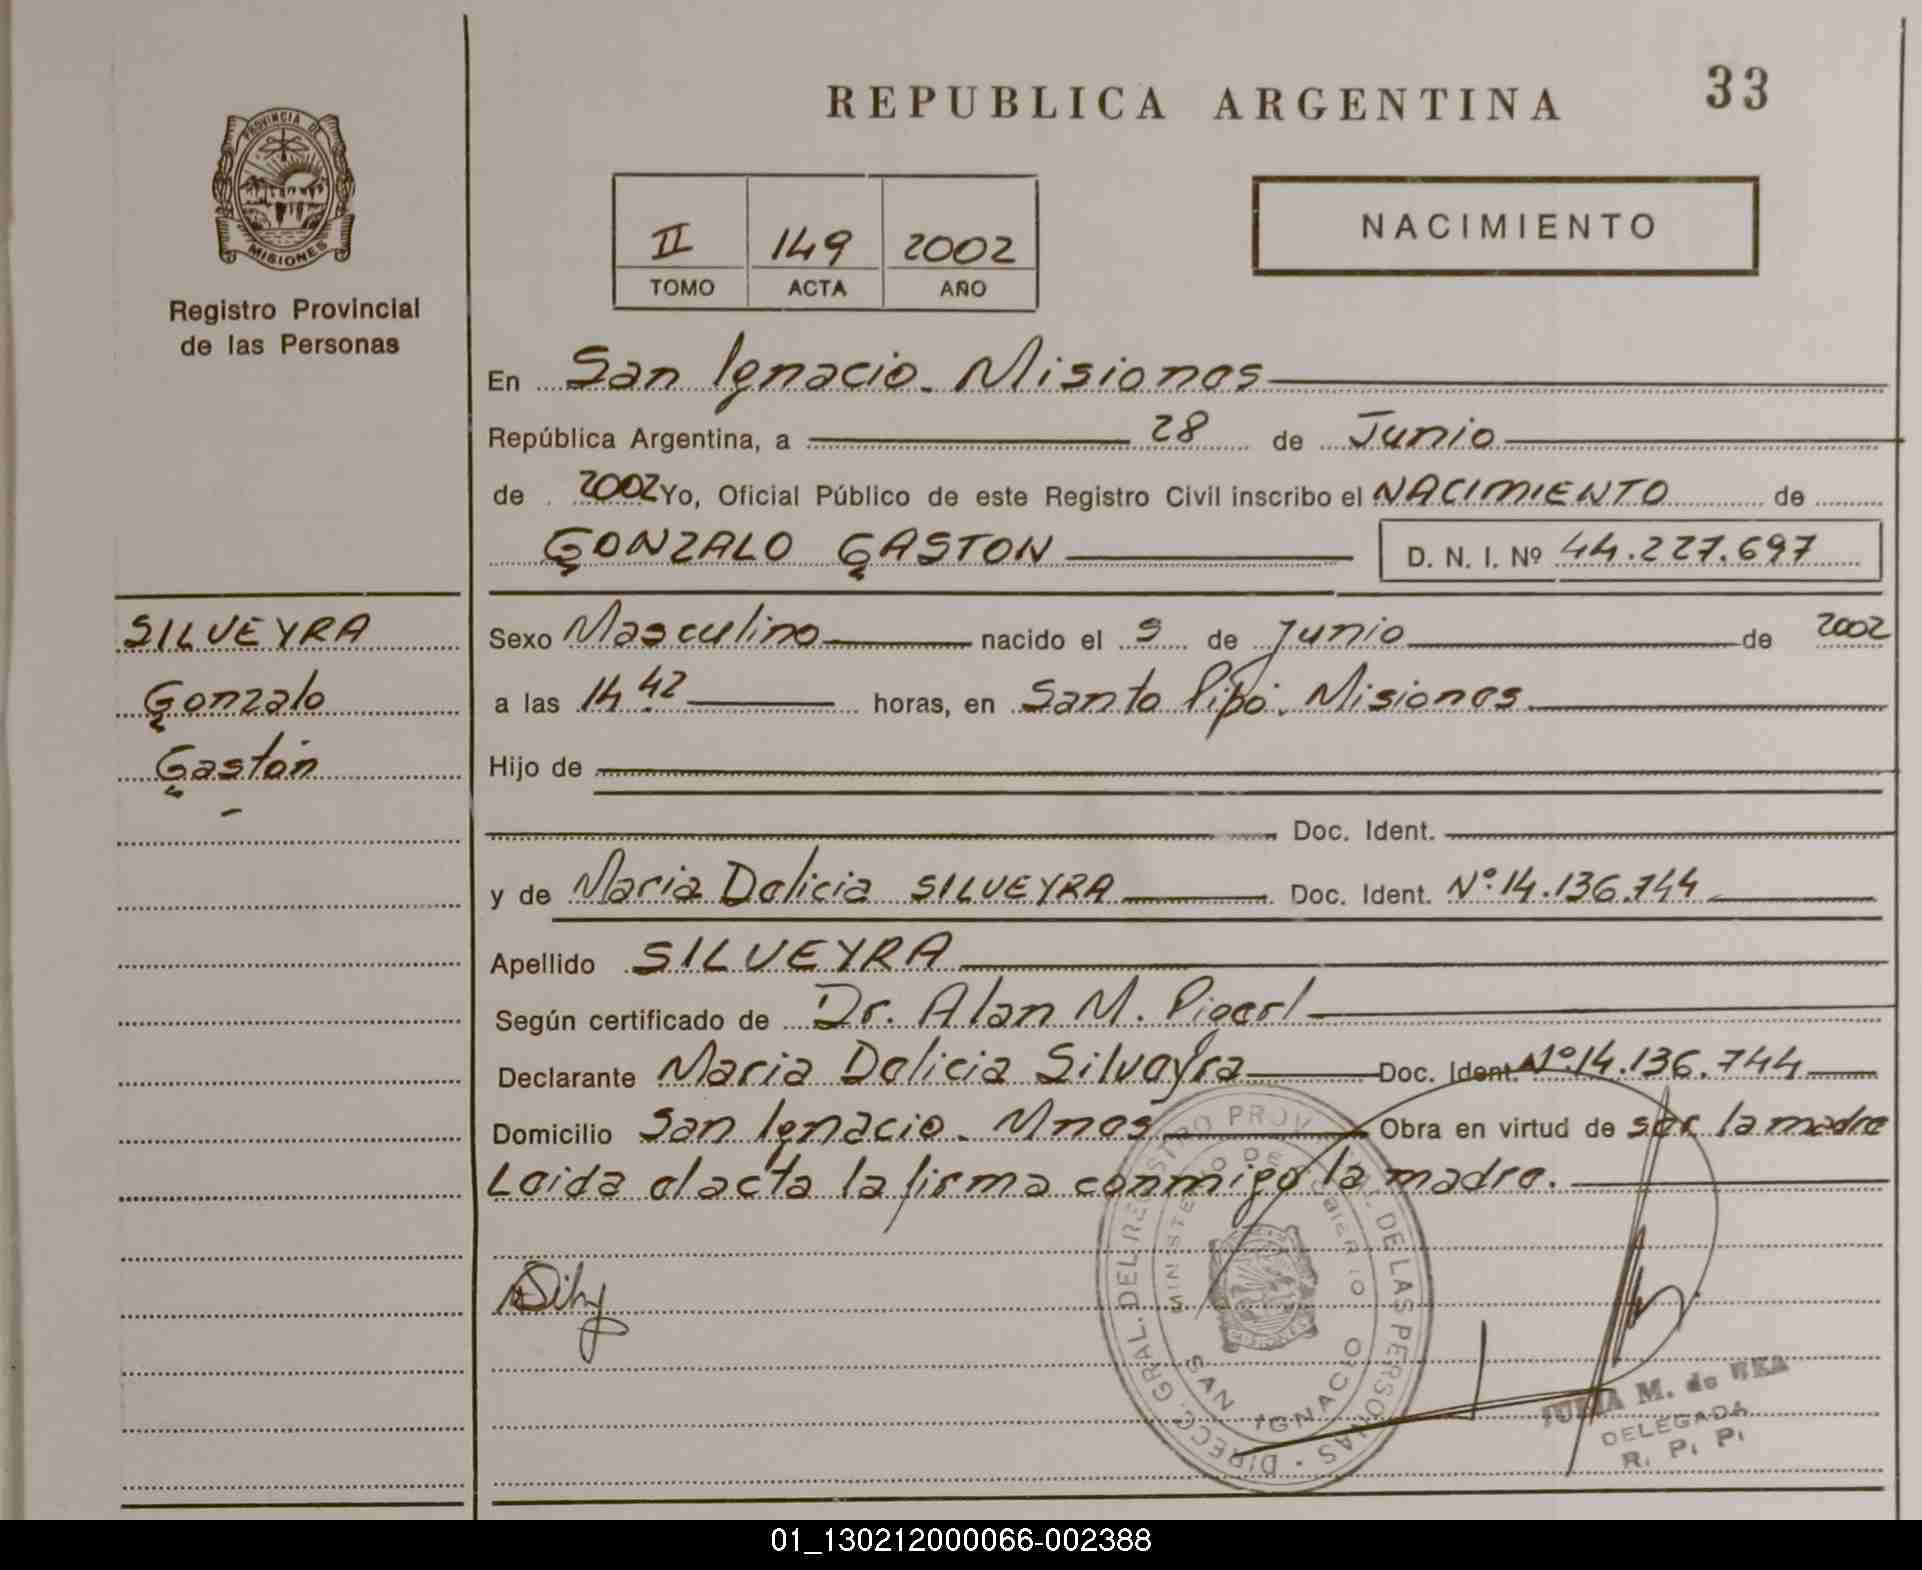 PROVINCIA DE
MISIONES
Registro Provincial
de las Personas
REPUBLICA ARGENTINA 33
II 149 2002
TOMO ACTA AÑO
NACIMIENTO
En San Ignacio. Misiones
República Argentina, a 28 de Junio
de 2002 Yo, Oficial Público de este Registro Civil inscribo el NACIMIENTO de
GONZALO GASTON D. N. I. Nº 44.227.697
SILVEYRA
Gonzalo
Gastón
Sexo Masculino nacido el 9 de Junio de 2002
a las 14.42 horas, en Santo Pipó. Misiones
Hijo de
Doc. Ident.
y de Maria Delicia SILVEYRA Doc. Ident. Nº 14.136.744
Apellido SILVEYRA
Según certificado de Dr. Alan M.
Declarante Maria Delicia Silveyra Doc. Ident. Nº 14.136.744
Domicilio San Ignacio. Mnes Obra en virtud de ser la madre
Leida el acta la firma conmigo la madre.
DIRECC. GRAL. DEL REGISTRO PROV. DE LAS PERSONAS
MINISTERIO DE GOBIERNO
SAN IGNACIO
M. de
DELEGADA
R. P. P.
01_130212000066-002388